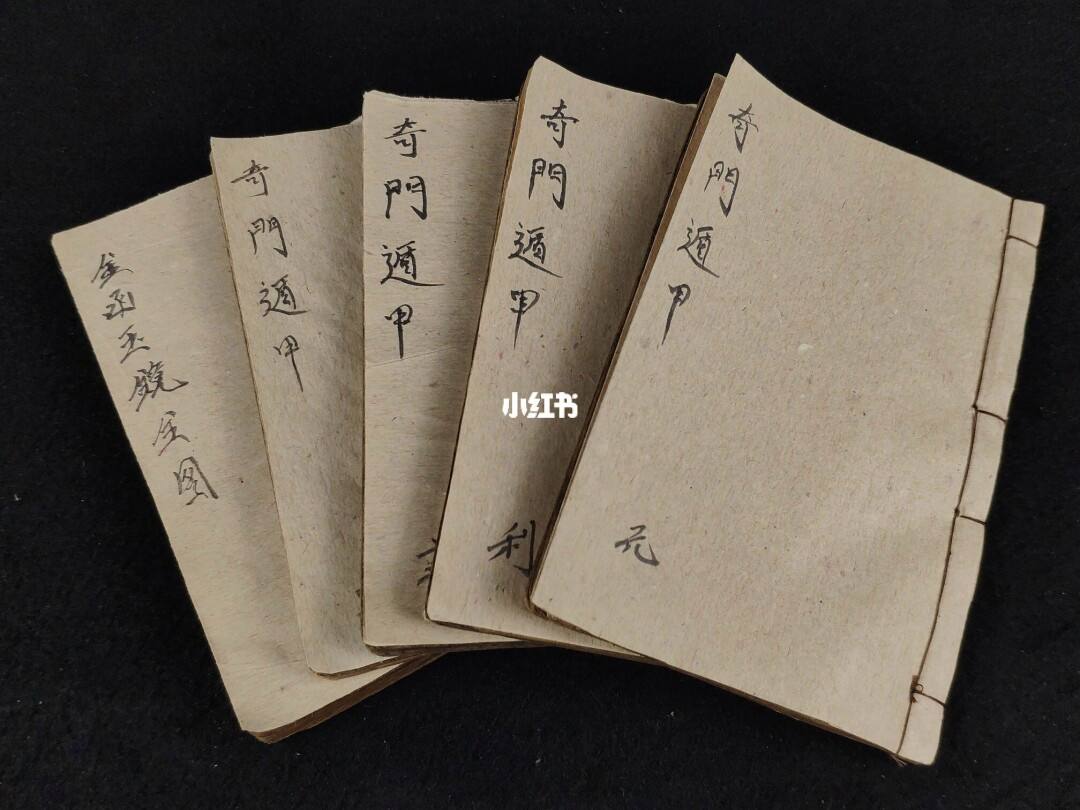 奇門遁甲
元
奇門遁甲
利
奇門遁甲
奇門遁甲
金函玉鏡全图
小红书